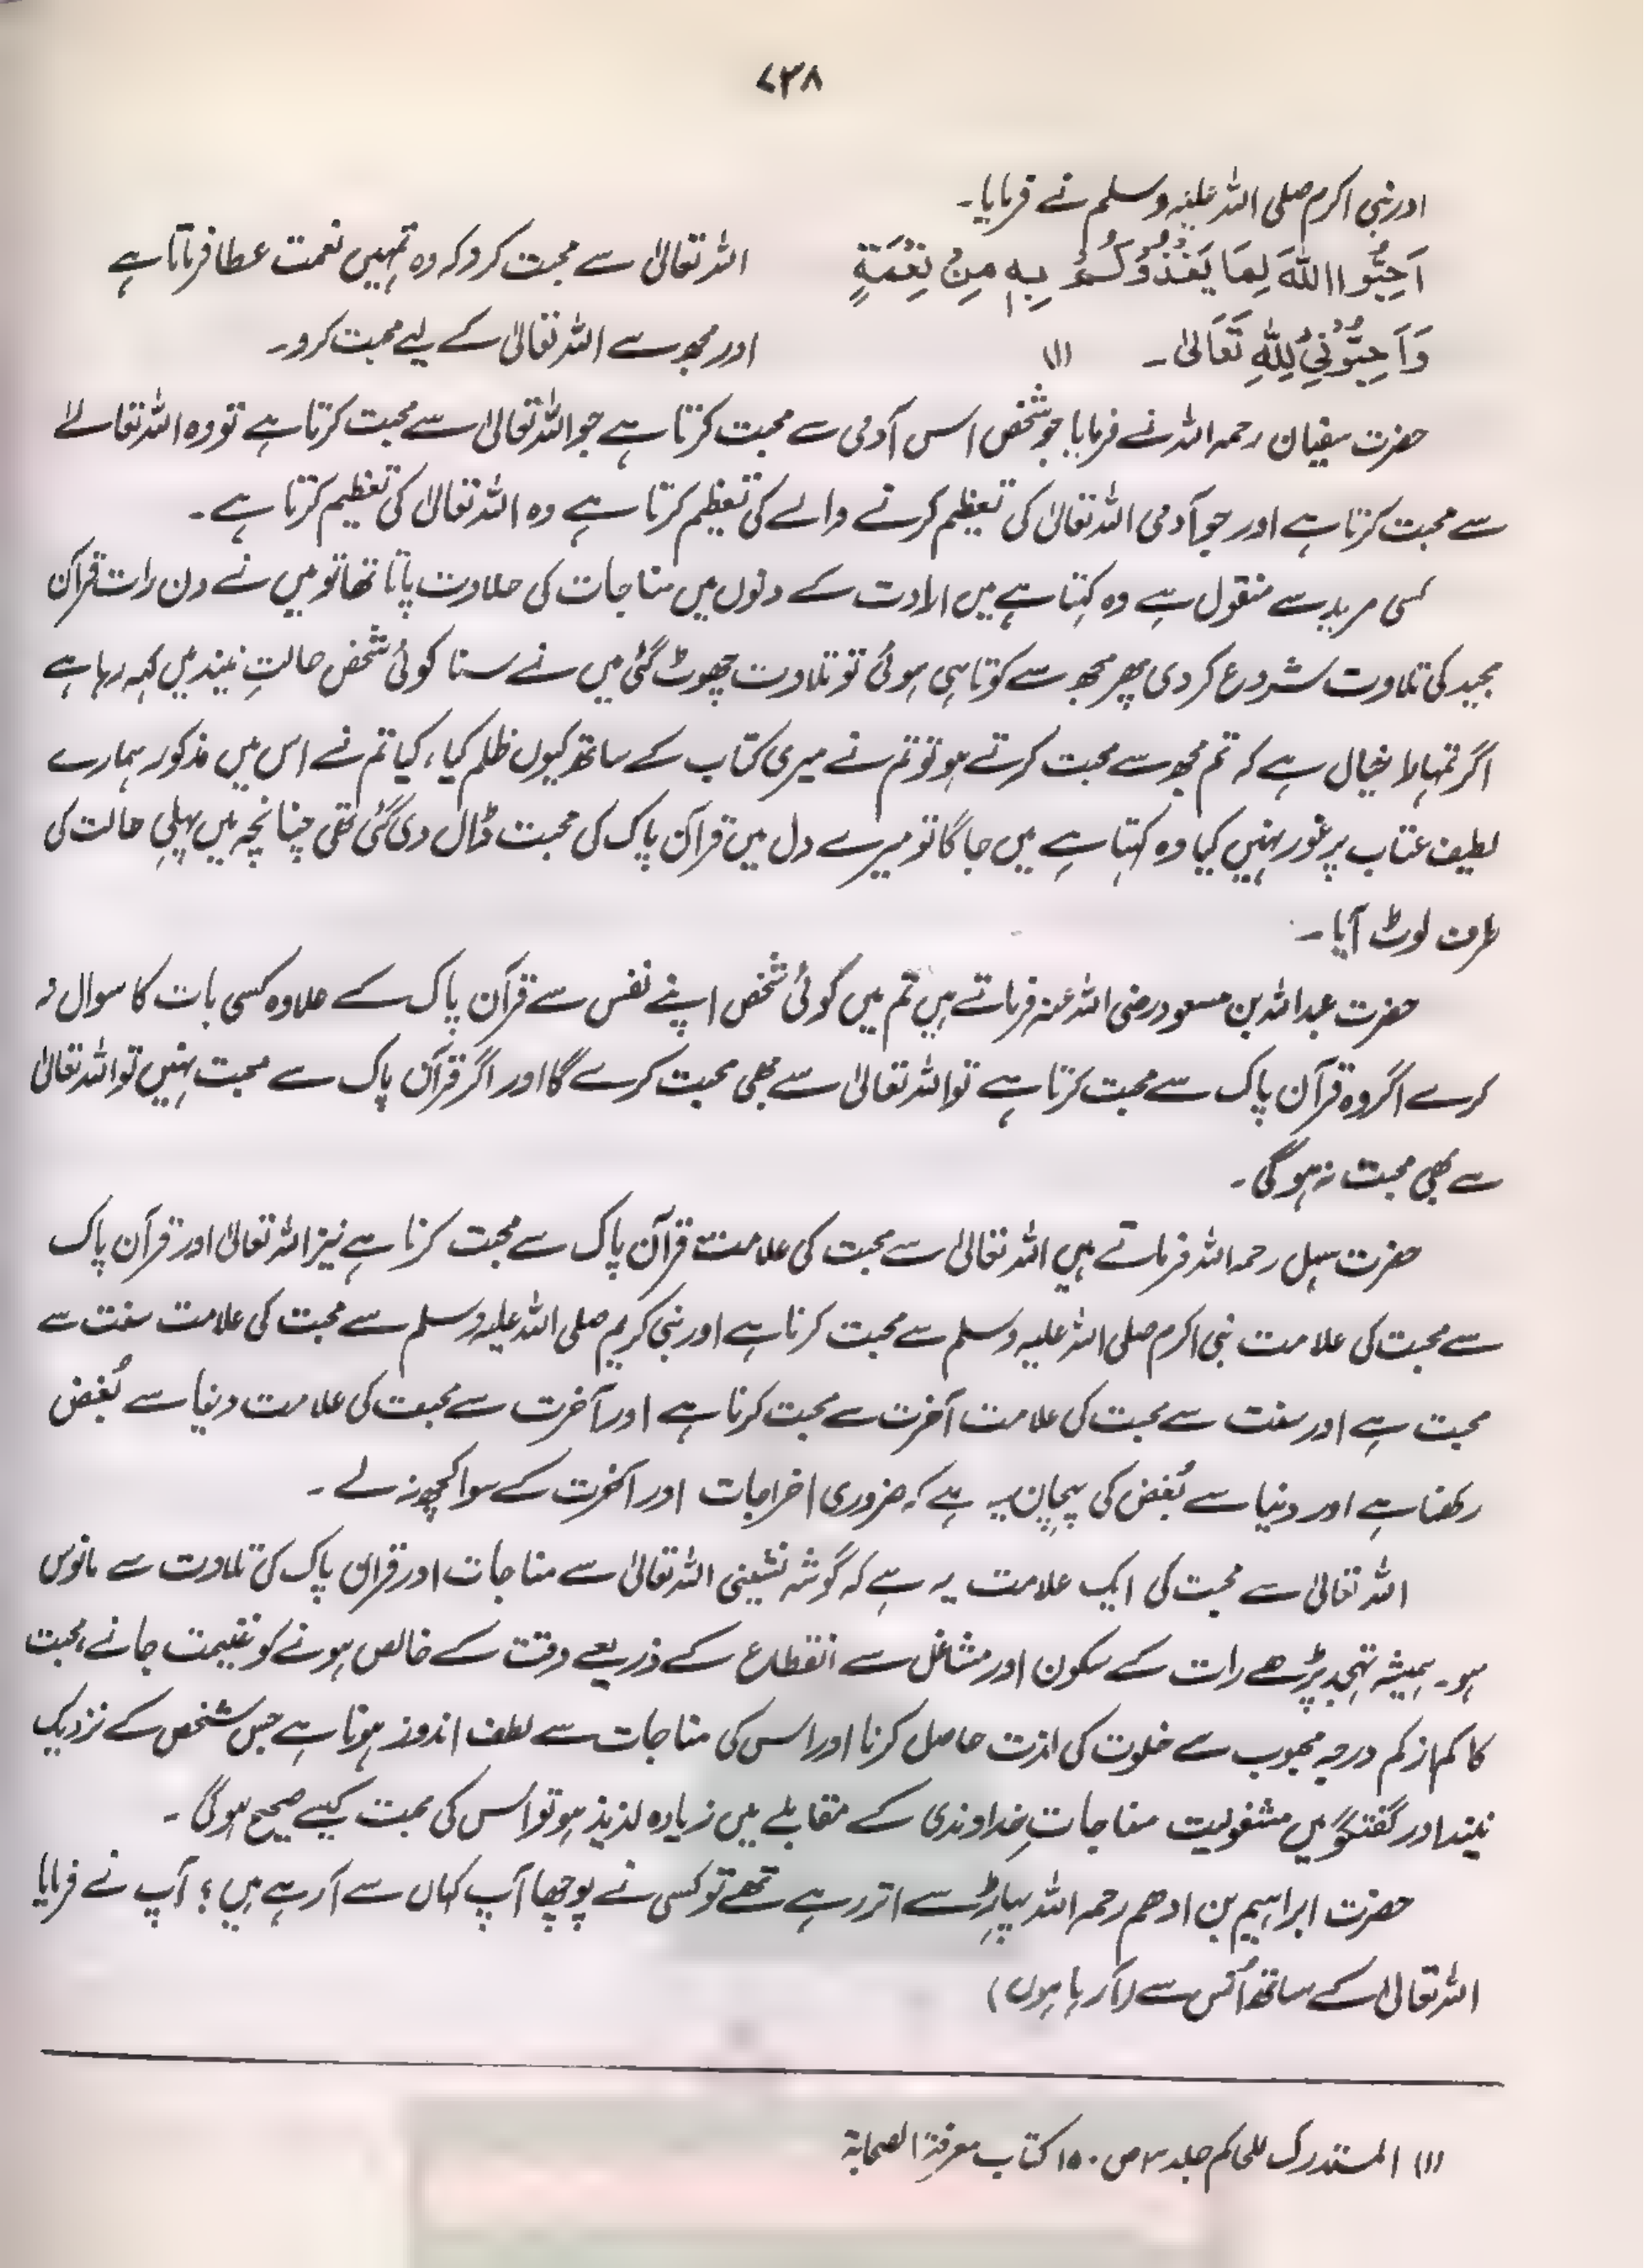 ۷۳۸
اور نبی اکرم صلی اللہ علیہ وسلم نے فرمایا۔
اَحِبُّوا اللّٰهَ لِمَا یَغْذُوْکُمْ بِهٖ مِنْ نِعْمَةٍ اللہ تعالیٰ سے محبت کرو کہ وہ تمہیں نعمت عطا فرماتا ہے
وَاَحِبُّوْنِیْ لِلّٰهِ تَعَالٰی۔ (۱) اور مجھ سے اللہ تعالیٰ کے لیے محبت کرو۔
حضرت سفیان رحمہ اللہ نے فرمایا جو شخص اس آدمی سے محبت کرتا ہے جو اللہ تعالیٰ سے محبت کرتا ہے تو وہ اللہ تعالےٰ
سے محبت کرتا ہے اور جو آدمی اللہ تعالیٰ کی تعظیم کرنے والے کی تعظیم کرتا ہے وہ اللہ تعالیٰ کی تعظیم کرتا ہے۔
کسی مرید سے منقول ہے وہ کہتا ہے میں ارادت کے دنوں میں مناجات کی حلاوت پاتا تھا تو میں نے دن رات قرآن
مجید کی تلاوت شروع کر دی پھر مجھ سے کوتاہی ہوئی تو تلاوت چھوٹ گئی میں نے سنا کوئی شخص حالتِ نیند میں کہہ رہا ہے
اگر تمہارا خیال ہے کہ تم مجھ سے محبت کرتے ہو تو تم نے میری کتاب کے ساتھ کیوں ظلم کیا، کیا تم نے اس میں مذکور ہمارے
لطیف عتاب پر غور نہیں کیا وہ کہتا ہے میں جاگا تو میرے دل میں قرآن پاک کی محبت ڈال دی گئی تھی چنانچہ میں پہلی حالت کی
طرف لوٹ آیا۔
حضرت عبداللہ بن مسعود رضی اللہ عنہ فرماتے ہیں تم میں کوئی شخص اپنے نفس سے قرآن پاک کے علاوہ کسی بات کا سوال نہ
کرے اگر وہ قرآن پاک سے محبت کرتا ہے تو اللہ تعالیٰ سے بھی محبت کرے گا اور اگر قرآن پاک سے محبت نہیں تو اللہ تعالیٰ
سے بھی محبت نہ ہو گی۔
حضرت سہل رحمہ اللہ فرماتے ہیں اللہ تعالیٰ سے محبت کی علامت قرآن پاک سے محبت کرنا ہے نیز اللہ تعالیٰ اور قرآن پاک
سے محبت کی علامت نبی اکرم صلی اللہ علیہ وسلم سے محبت کرنا ہے اور نبی کریم صلی اللہ علیہ وسلم سے محبت کی علامت سنت سے
محبت ہے اور سنت سے محبت کی علامت آخرت سے محبت کرنا ہے اور آخرت سے محبت کی علامت دنیا سے بُغض
رکھنا ہے اور دنیا سے بُغض کی پہچان یہ ہے کہ ضروری اخراجات اور آخرت کے سوا کچھ نہ لے۔
اللہ تعالیٰ سے محبت کی ایک علامت یہ ہے کہ گوشہ نشینی اللہ تعالیٰ سے مناجات اور قرآن پاک کی تلاوت سے مانوس
ہو۔ ہمیشہ تہجد پڑھے رات کے سکون اور مشاغل سے انقطاع کے ذریعے وقت کے خالص ہونے کو غنیمت جانے، محبت
کا کم از کم درجہ محبوب سے خلوت کی لذت حاصل کرنا اور اس کی مناجات سے لطف اندوز ہونا ہے جس شخص کے نزدیک
نیند اور گفتگو میں مشغولیت مناجاتِ خداوندی کے مقابلے میں زیادہ لذیذ ہو تو اس کی محبت کیسے صحیح ہو گی۔
حضرت ابراہیم بن ادھم رحمہ اللہ پہاڑ سے اتر رہے تھے تو کسی نے پوچھا آپ کہاں سے آ رہے ہیں؟ آپ نے فرمایا
اللہ تعالیٰ کے ساتھ اُنس سے (آ رہا ہوں)
(۱) المستدرک للحاکم جلد ۳ ص ۱۵۰ کتاب معرفۃ الصحابۃ